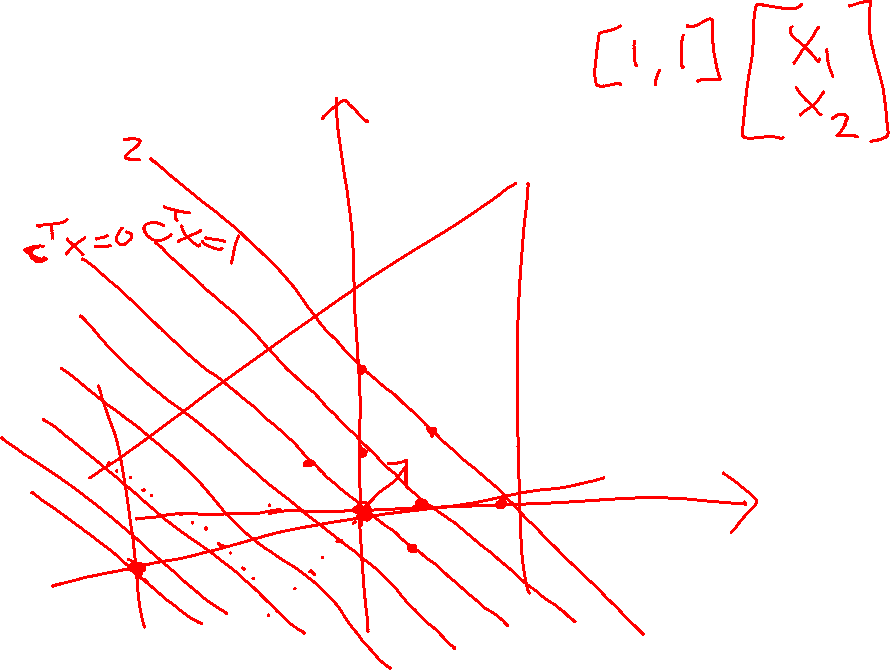 [1, 1] [x₁
x₂]
2
cᵀx=0 cᵀx=1